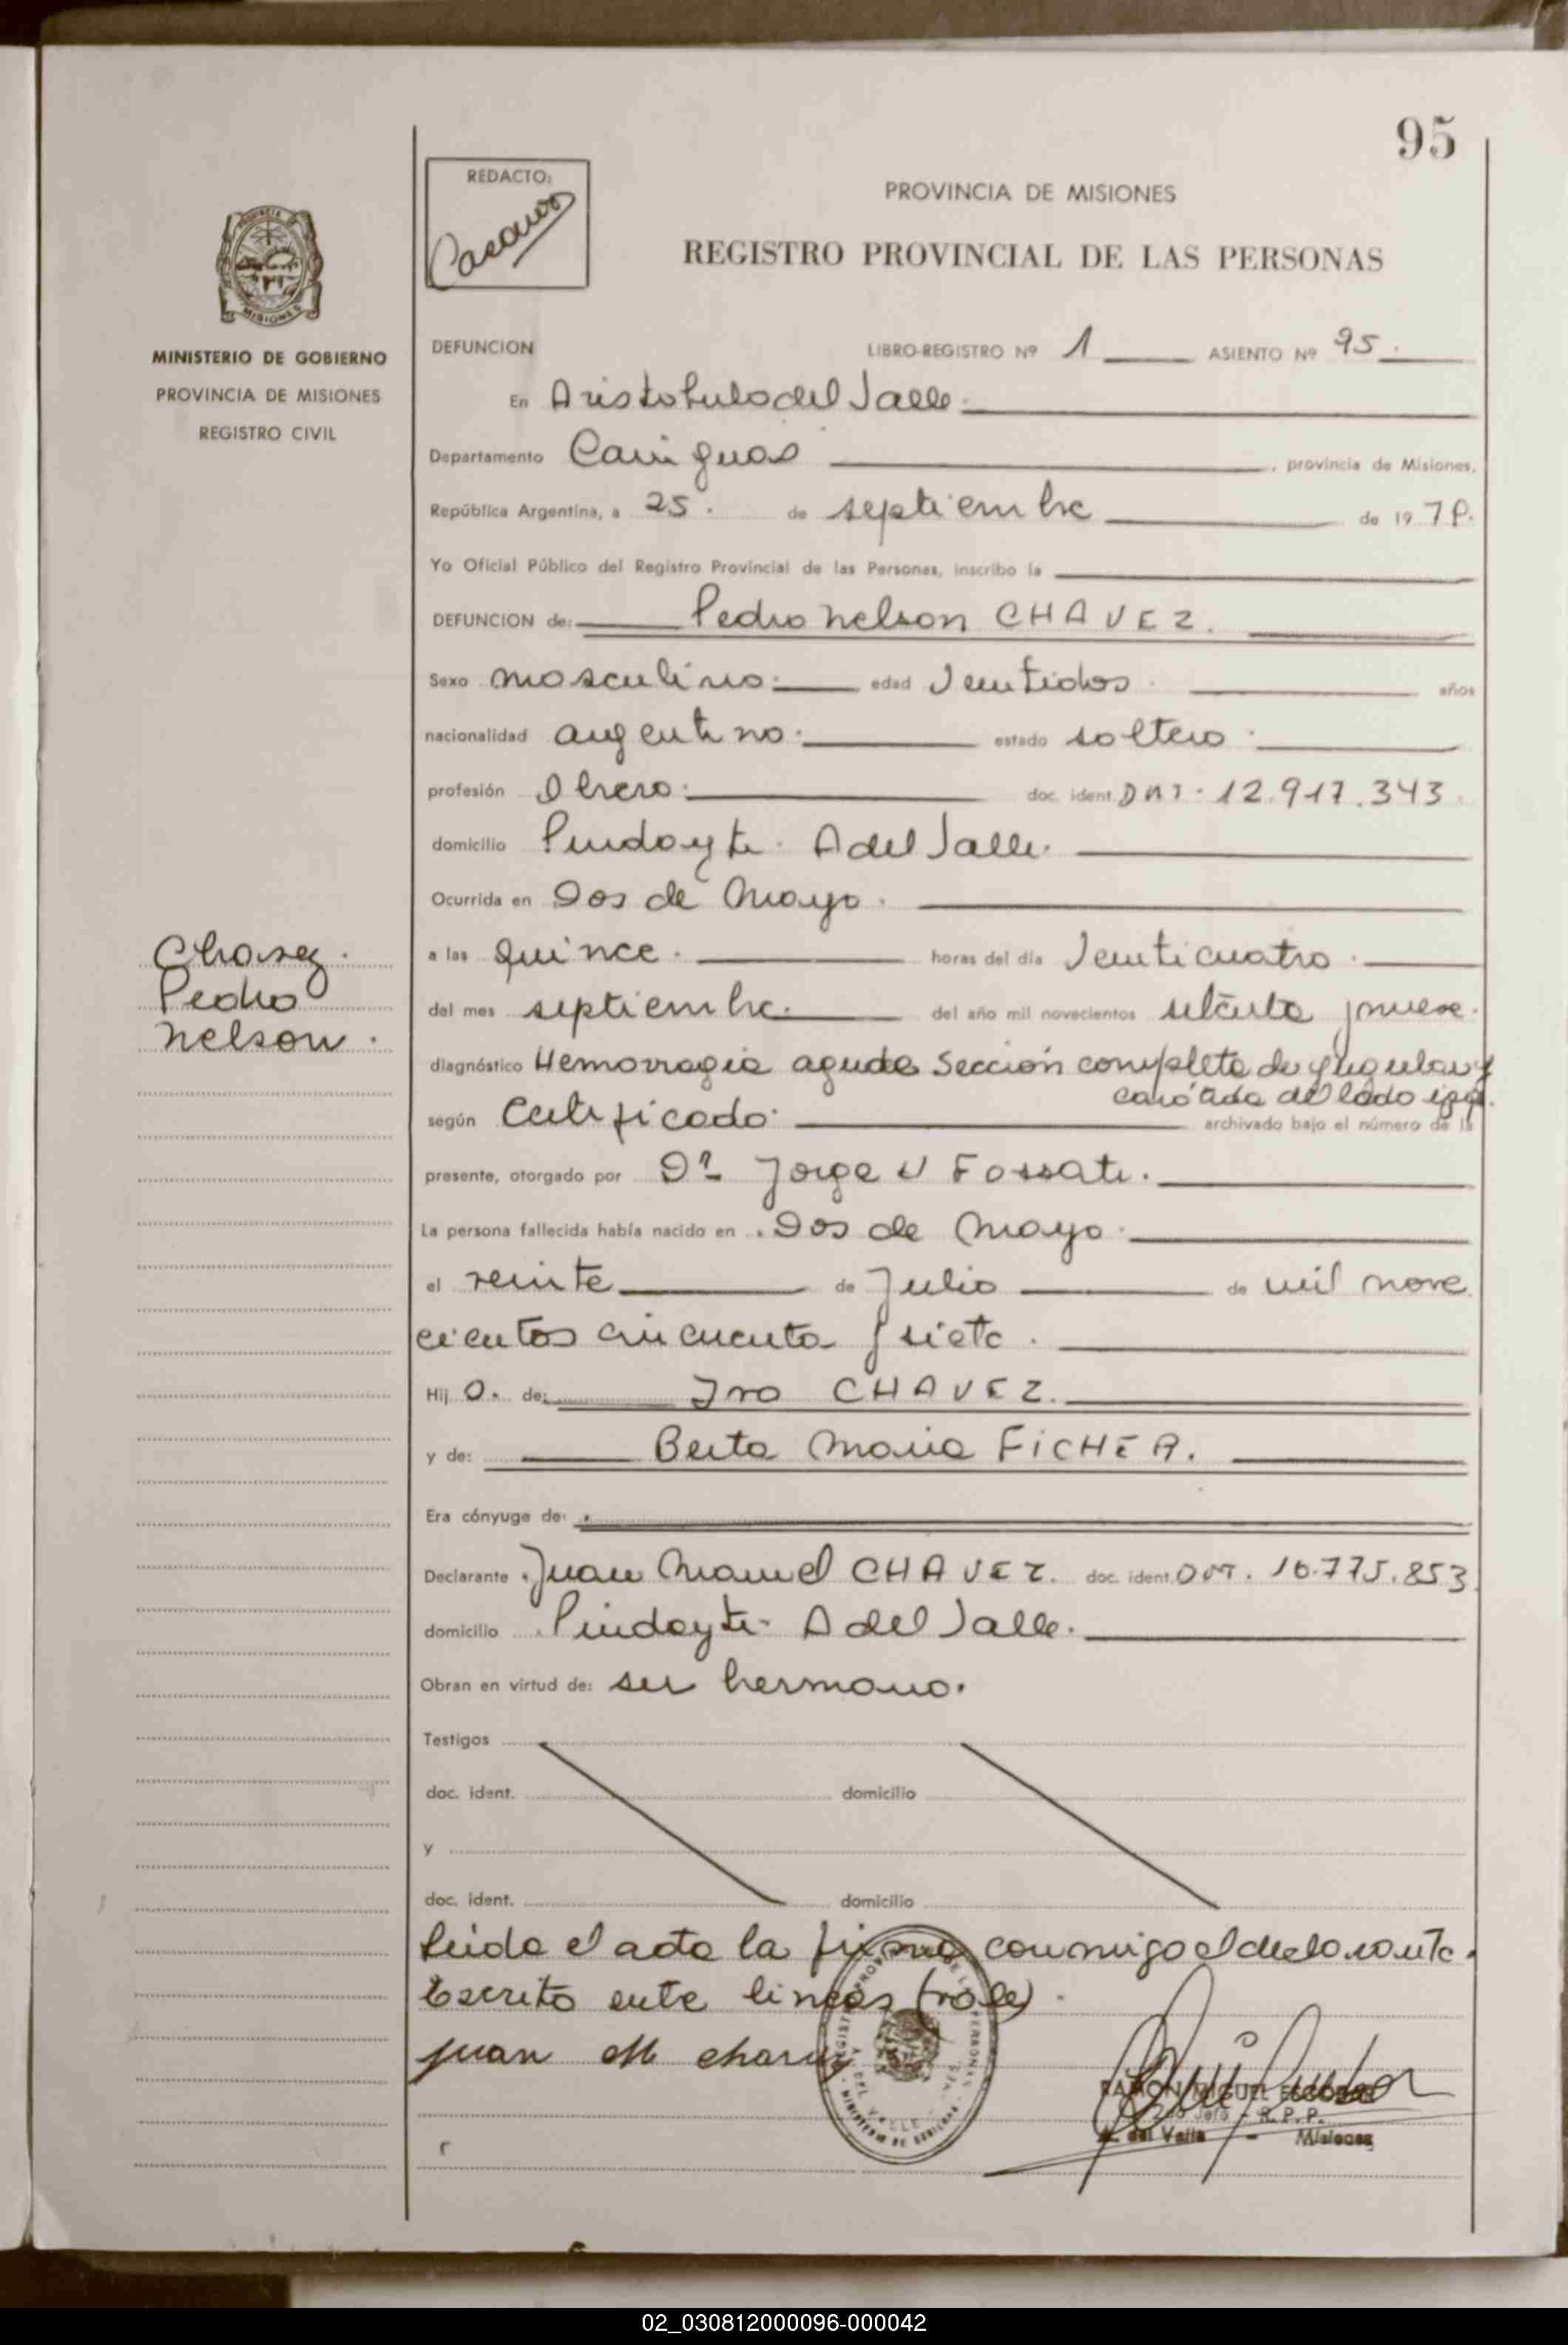 95
REDACTO:
PROVINCIA DE MISIONES
REGISTRO PROVINCIAL DE LAS PERSONAS
MINISTERIO DE GOBIERNO
PROVINCIA DE MISIONES
REGISTRO CIVIL
DEFUNCION LIBRO-REGISTRO Nº 1 ASIENTO Nº 95.
En Aristobulo del Valle.
Departamento Cainguas, provincia de Misiones,
República Argentina, a 25. de septiembre de 19 79.
Yo Oficial Público del Registro Provincial de las Personas, inscribo la
DEFUNCION de: Pedro Nelson CHAVEZ.
Sexo masculino. edad Veintidos. años
nacionalidad argentino. estado soltero.
profesión Obrero. doc. ident. DNI. 12.917.343.
domicilio Pindayti. A del Valle.
Ocurrida en Dos de Mayo.
Chavez.
Pedro
Nelson.
a las quince. horas del día Veinticuatro.
del mes septiembre. del año mil novecientos setenta y nueve.
diagnóstico Hemorragia aguda Sección completa de yugular y
carótida del lado izq.
según Certificado. archivado bajo el número de la
presente, otorgado por Dr Jorge V Fossati.
La persona fallecida había nacido en Dos de Mayo.
el veinte de Julio de mil nove
cientos cincuenta y siete.
Hij o. de: Ivo CHAVEZ.
y de: Berta Maria FiCHER.
Era cónyuge de:
Declarante Juan Manuel CHAVEZ. doc. ident. DNI. 16.775.853
domicilio Pindayti. A del Valle.
Obran en virtud de: ser hermano.
Testigos
doc. ident. domicilio
y
doc. ident. domicilio
Leida el acta la firma conmigo el declarante.
Escrito entre lineas (vale).
Juan M chavez
RAMON MIGUEL ESCOBAR
Jefe - R.P.P.
A. del Valle - Misiones
02_030812000096-000042